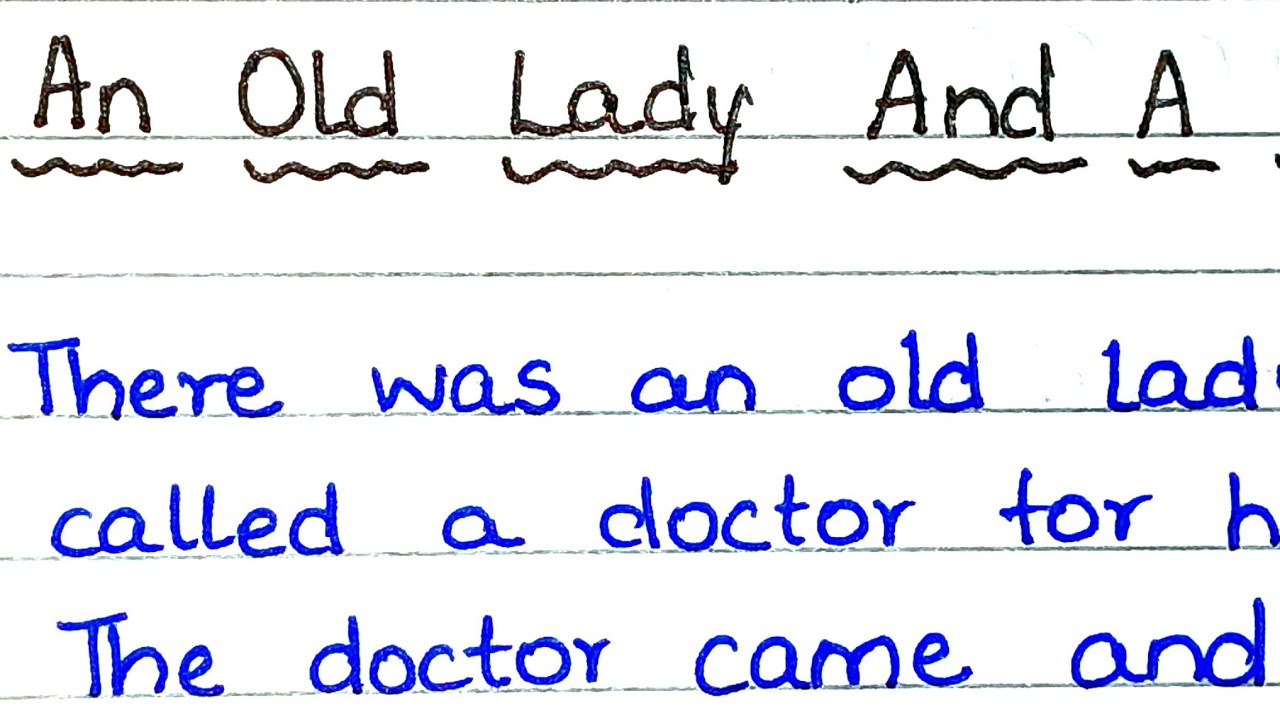 An Old Lady And A
There was an old lad
called a doctor for h
The doctor came and